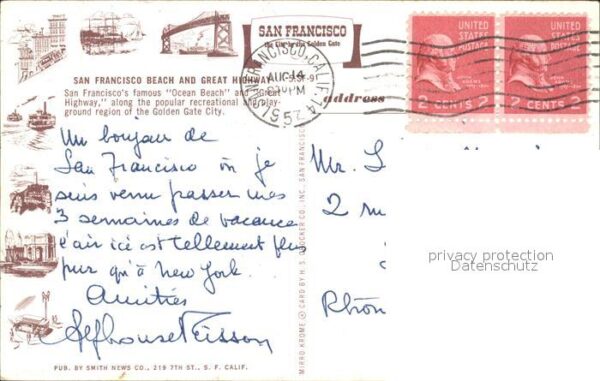 SAN FRANCISCO
The City by the Golden Gate
SAN FRANCISCO, CALIF. 14
AUG 14
PM
1952
UNITED STATES POSTAGE
2 CENTS 2
UNITED STATES POSTAGE
2 CENTS 2
SAN FRANCISCO BEACH AND GREAT HIGHWAY—SSF-91
San Francisco's famous "Ocean Beach" and "Great
Highway," along the popular recreational and play-
ground region of the Golden Gate City.
address
Un bonjour de
San Francisco où je
suis venu passer mes
3 semaines de vacance
l'air ici est tellement plus
pur qu'à New York.
Amitiés
Alphonse
Mr. L
2 ru
Rhôn
MIRRO-KROME ® CARD BY H. S. CROCKER CO., INC. SAN FRANCISCO
PUB. BY SMITH NEWS CO., 219 7TH ST., S. F. CALIF.
privacy protection
Datenschutz